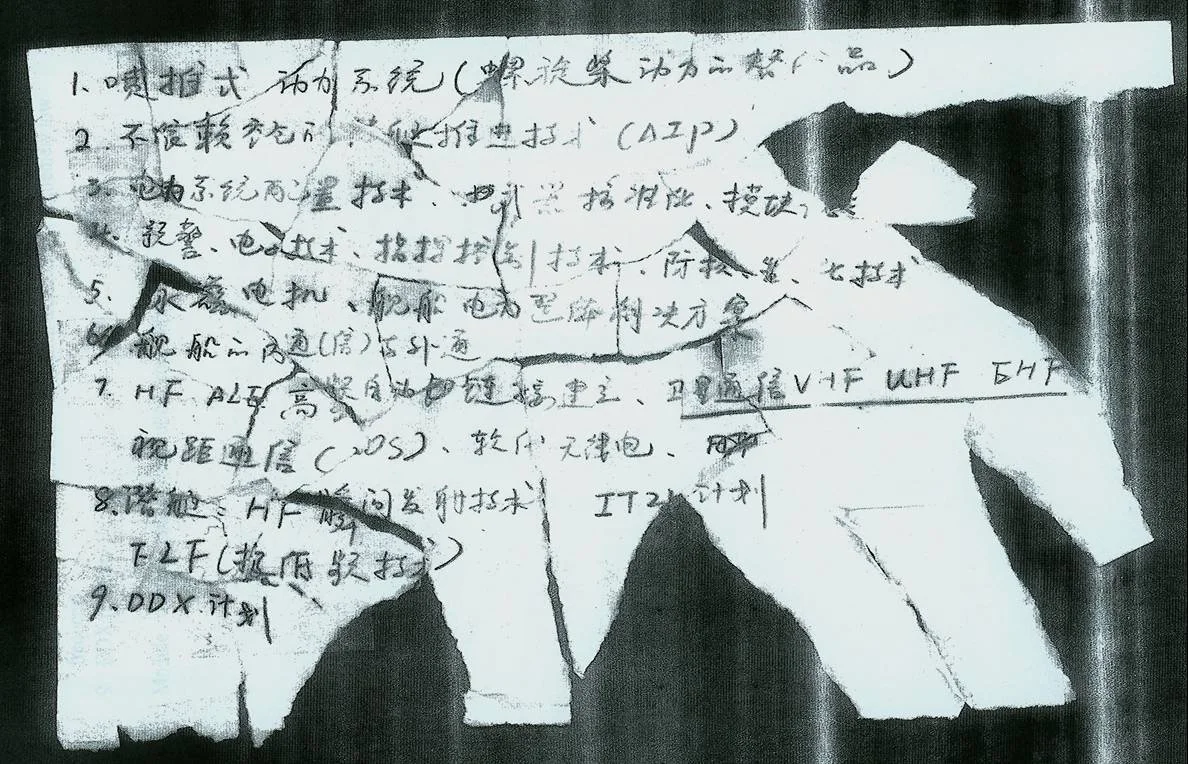 1. 喷推式 动力系统(螺旋桨动力的替代品)
2. 不依赖 推进技术 (AIP)
3. 电力系统配置技术、 标准化、模块
4. 预警、电 技术、指挥控制技术、防 技术
5. 永磁电机、舰船电力 解决方案
6. 舰船的内通(信)与外通
7. HF ALE 高频自动 链接建立、卫星通信 VHF UHF EHF
视距通信(LOS)、软件无线电、
8. 潜艇: HF 瞬间发射技术 IT21计划
ELF( 低频技术)
9. DDX计划